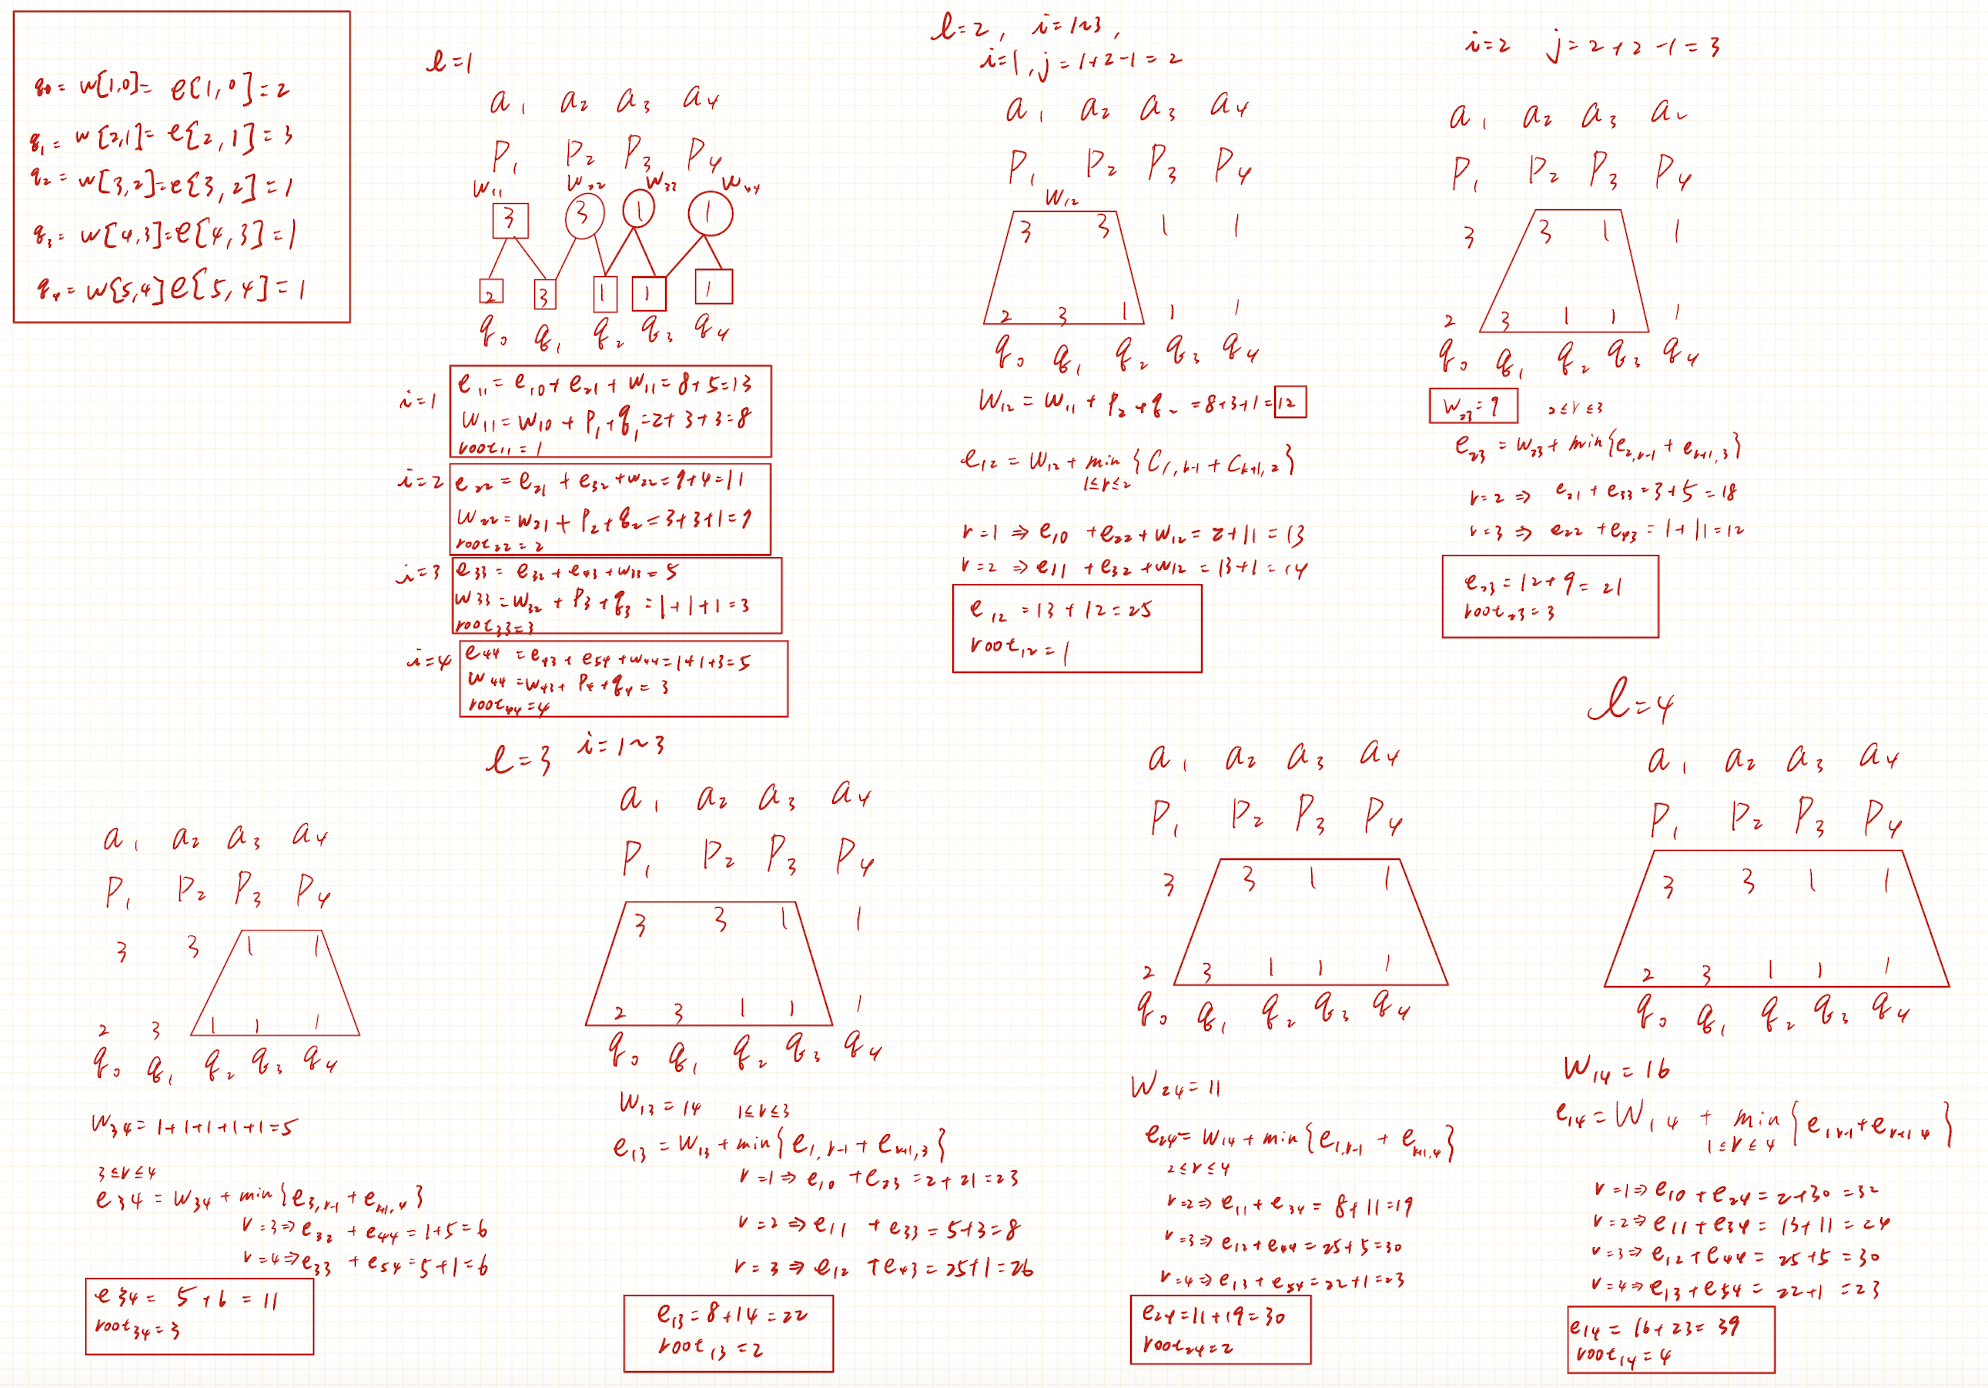 q0 = w[1,0] = e[1,0] = 2
q1 = w[2,1] = e[2,1] = 3
q2 = w[3,2] = e[3,2] = 1
q3 = w[4,3] = e[4,3] = 1
q4 = w[5,4] e[5,4] = 1
l=1
a1 a2 a3 a4
P1 P2 P3 P4
w11 w22 w33 w44
3 3 1 1
2 3 1 1 1
q0 q1 q2 q3 q4
i=1
e11 = e10 + e21 + w11 = 8+5=13
w11 = w10 + P1 + q1 = 2+3+3=8
root11 = 1
i=2
e22 = e21 + e32 + w22 = 9+4=11
w22 = w21 + P2 + q2 = 3+3+1=9
root22 = 2
i=3
e33 = e32 + e43 + w33 = 5
w33 = w32 + P3 + q3 = 1+1+1=3
root33 = 3
i=4
e44 = e43 + e54 + w44 = 1+1+3=5
w44 = w43 + P4 + q4 = 3
root44 = 4
l=2, i=1~3,
i=1, j=1+2-1=2
a1 a2 a3 a4
P1 P2 P3 P4
w12
3 3 1 1
2 3 1 1 1
q0 q1 q2 q3 q4
w12 = w11 + P2 + q2 = 8+3+1=12
e12 = w12 + min {C1,k-1 + Ck+1,2}
1≤r≤2
r=1 ⇒ e10 + e22 + w12 = 2+11=13
r=2 ⇒ e11 + e32 + w12 = 13+1=14
e12 = 13+12=25
root12 = 1
i=2 j=2+2-1=3
a1 a2 a3 a
P1 P2 P3 P4
3 3 1 1
2 3 1 1 1
q0 q1 q2 q3 q4
w23 = 9 2≤r≤3
e23 = w23 + min{e2,r-1 + er+1,3}
r=2 ⇒ e21 + e33 = 3+5=18
r=3 ⇒ e22 + e43 = 1+11=12
e23 = 12+9=21
root23 = 3
a1 a2 a3 a4
P1 P2 P3 P4
3 3 1 1
2 3 1 1 1
q0 q1 q2 q3 q4
w34 = 1+1+1+1+1=5
3≤r≤4
e34 = w34 + min{e3,r-1 + er+1,4}
r=3 ⇒ e32 + e44 = 1+5=6
r=4 ⇒ e33 + e54 = 5+1=6
e34 = 5+6=11
root34 = 3
l=3 i=1~3
a1 a2 a3 a4
P1 P2 P3 P4
3 3 1 1
2 3 1 1 1
q0 q1 q2 q3 q4
w13 = 14 1≤r≤3
e13 = w13 + min{e1,r-1 + er+1,3}
r=1 ⇒ e10 + e23 = 2+21=23
r=2 ⇒ e11 + e33 = 5+3=8
r=3 ⇒ e12 + e43 = 25+1=26
e13 = 8+14=22
root13 = 2
a1 a2 a3 a4
P1 P2 P3 P4
3 3 1 1
2 3 1 1 1
q0 q1 q2 q3 q4
w24 = 11
e24 = w14 + min{e1,r-1 + er+1,4}
2≤r≤4
r=2 ⇒ e11 + e34 = 8+11=19
r=3 ⇒ e12 + e44 = 25+5=30
r=4 ⇒ e13 + e54 = 22+1=23
e24 = 11+19=30
root24 = 2
l=4
a1 a2 a3 a4
P1 P2 P3 P4
3 3 1 1
2 3 1 1 1
q0 q1 q2 q3 q4
w14 = 16
e14 = w14 + min {e1r-1 + er+1 4}
1≤r≤4
r=1 ⇒ e10 + e24 = 2+30=32
r=2 ⇒ e11 + e34 = 13+11=24
r=3 ⇒ e12 + e44 = 25+5=30
r=4 ⇒ e13 + e54 = 22+1=23
e14 = 16+23=39
root14 = 4